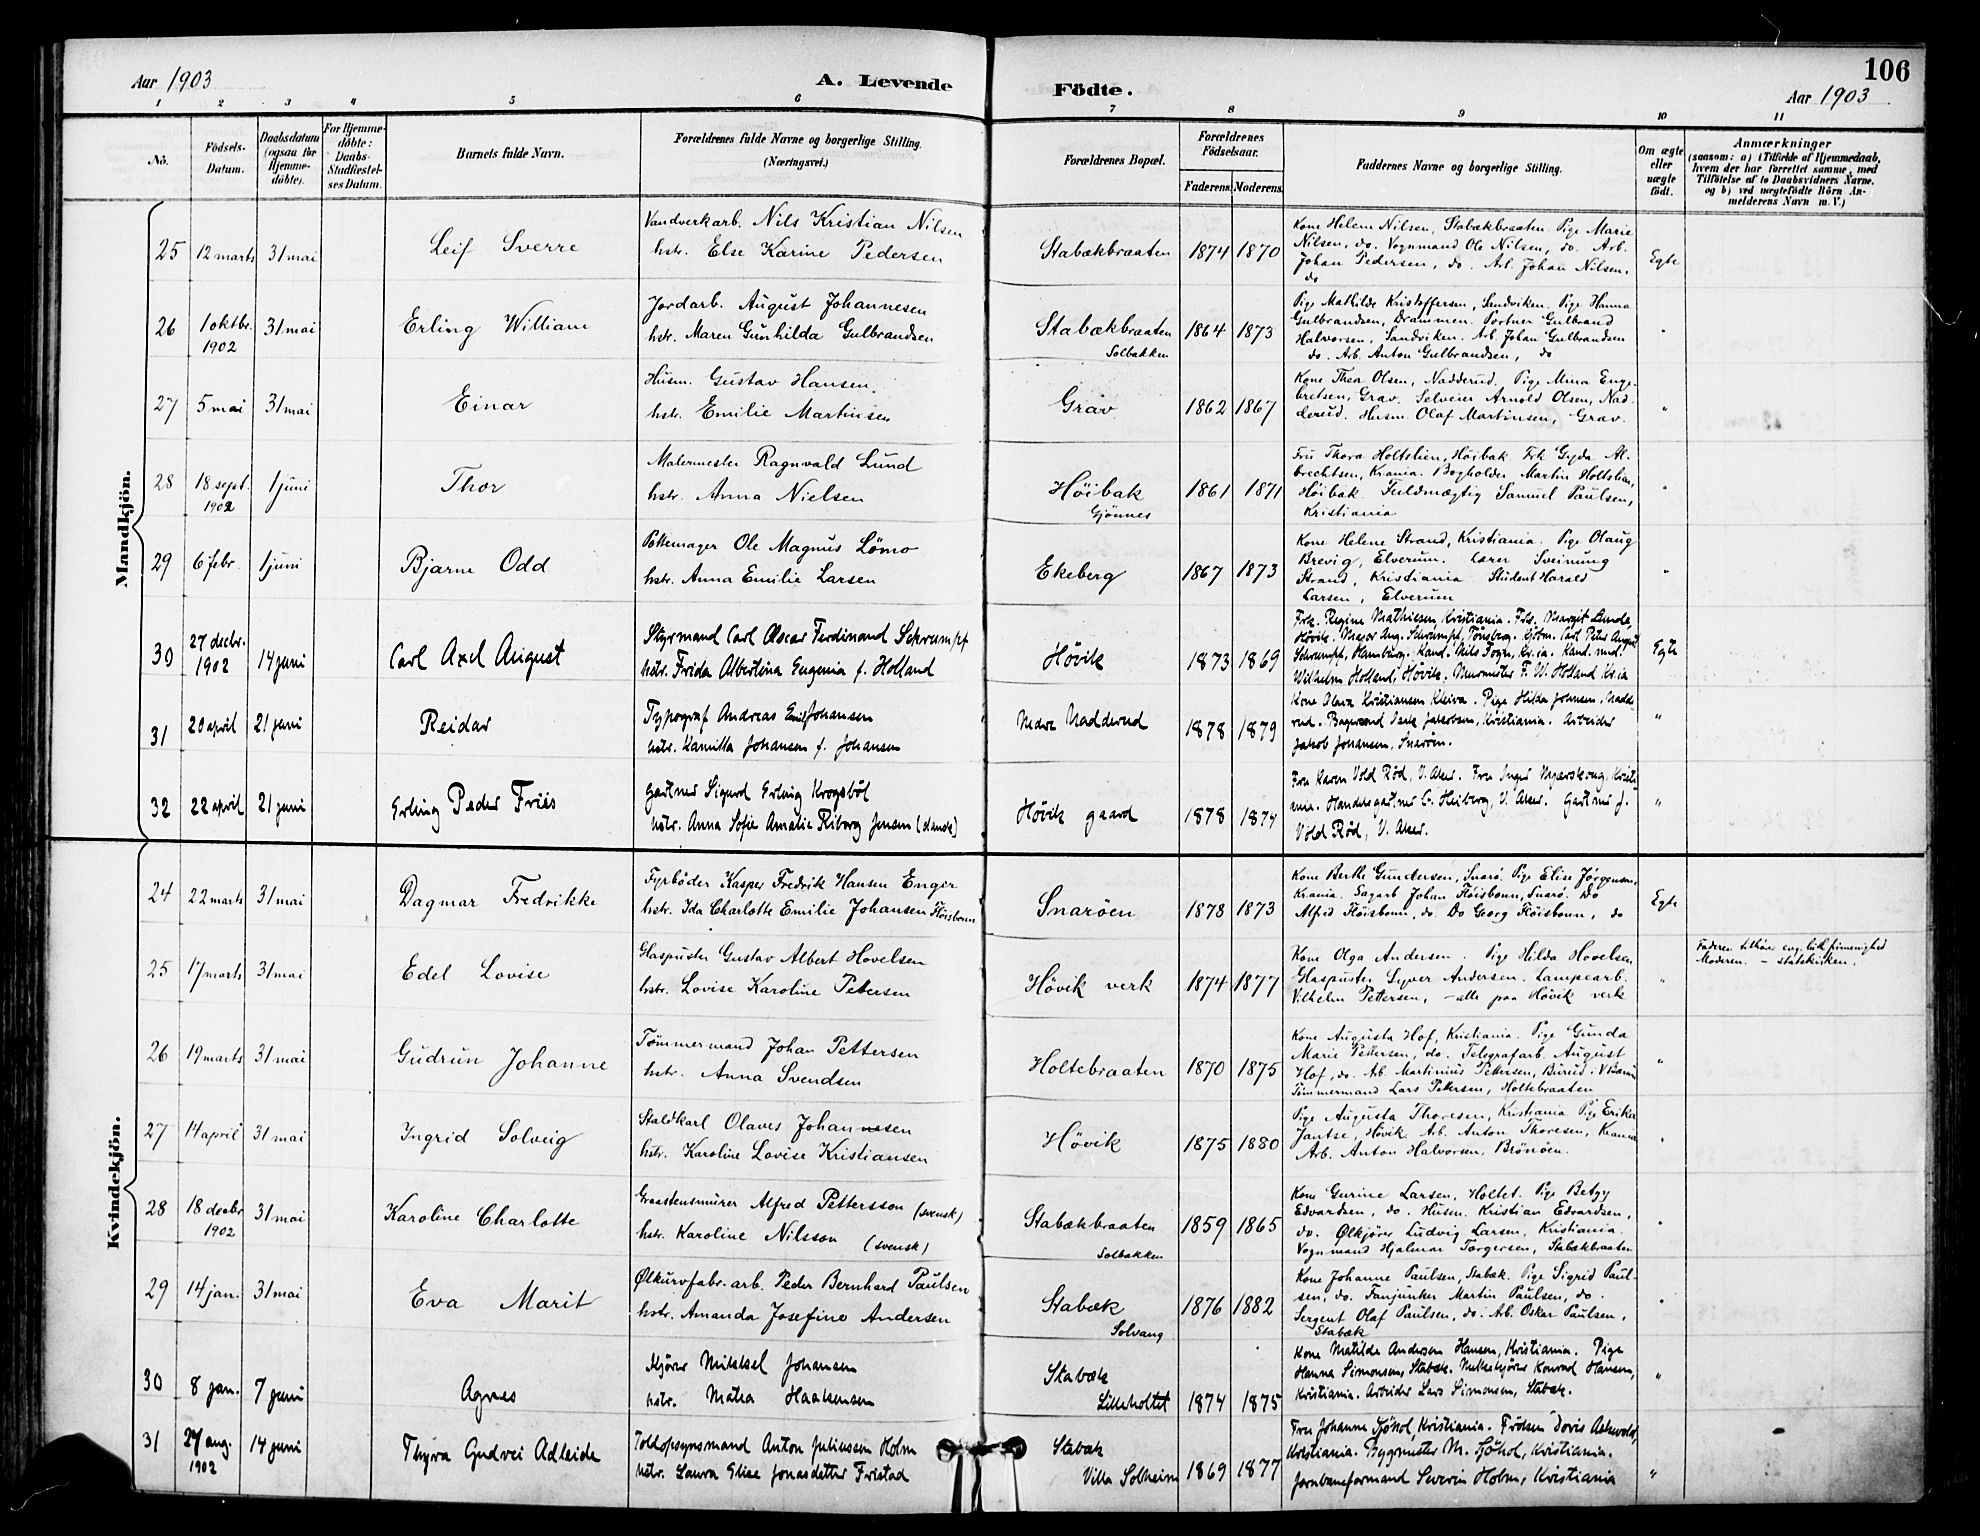 106
Aar 1903
A. Levende
Födte.
Aar 1903
1 2 3 4 5 6 7 8 9 10 11
No.
Födsels-
Datum.
Daabsdatum
(ogsaa for
Hjemme-
döbte).
For Hjemme-
döbte:
Daabs-
Stadfæstel-
ses Datum.
Barnets fulde Navn.
Forældrenes fulde Navne og borgerlige Stilling.
(Næringsvei.)
Forældrenes Bopæl.
Forældrenes
Födselsaar.
Faderens. Moderens.
Faddernes Navne og borgerlige Stilling.
Om ægte
eller
uægte
födt.
Anmærkninger
(saasom: a) i Tilfælde af Hjemmedaab,
hvem der har forrettet samme, med
Tilföielse af to Daabsvidners Navne,
og b) ved uægtefödte Börn An-
melderens Navn m. V.)
Mandkjön.
25 12 marts 31 mai Leif Sverre
Vandverkarb. Nils Kristian Nilsen
hstr. Else Karine Pedersen
Stabækbraaten 1874 1870
Kone Helene Nilsen, Stabækbraaten. Pige Marie
Nilsen, do. Vognmand Ole Nilsen, do. Arb.
Johan Pedersen, do. Arb. Johan Nilsen,
do
Egte
26 1 oktbr. 1902 31 mai Erling William
Jordarb. August Johannesen
hstr. Maren Gunhilda Gulbrandsen
Stabækbraaten
Solbakken
1864 1873
Pige Mathilde Kristoffersen, Sandviken. Pige Hanna
Gulbrandsen, Drammen. Portner Gulbrand
Halvorsen, Sandviken. Arb. Johan Gulbrandsen
do. Arb. Anton Gulbrandsen, do
27 5 mai 31 mai Einar
Husm. Gustav Hansen
hstr. Emilie Martinsen
Grav 1862 1867
Kone Thea Olsen, Nadderud. Pige Mina Enge-
bretsen, Grav. Selveier Arnold Olsen, Nad-
derud. Husm. Olaf Martinsen, Grav.
"
28 18 sept. 1902 1 juni Thor
Malermester Ragnvald Lund
hstr. Anna Nielsen
Höibak
Gjönnes
1861 1871
Fru Thora Holtslien, Höibak Frk Gyda Al-
brechtsen, Krania. Bogholder Martin Holtslien,
Höibak. Fuldmægtig Samuel Paulsen,
Kristiania
29 6 febr. 1 juni Bjarne Odd
Pottemager Ole Magnus Lömo
hstr. Anna Emilie Larsen
Ekeberg 1867 1873
Kone Helene Strand, Kristiania. Pige Olaug
Brevig, Elverum. Lærer Sveinung
Strand, Kristiania Student Harald
Larsen, Elverum
"
30 27 decbr. 1902 14 juni Carl Axel August
Styrmand Carl Oscar Ferdinand Schrumpf
hstr. Frida Albertina Eugenia f. Holland
Hövik 1873 1869
Frk. Regine Mathiesen, Kristiania. Frk. Margit Lunde,
Hövik. Major Aug. Schrumpf, Tönsberg. Kjöbm. Carl Peter August
Schrumpf, Hamburg. Kand. Nils Fogn, Kr.ia. Kand. med.
Wilhelm Holland, Hövik. Murmester F. W. Holland Kr.ia
Egte
31 20 april 21 juni Reidar
Typograf Andreas Emil Johansen
hstr. Kamilla Johansen f. Johansen
Nadderud 1878 1879
Kone Klara Kristiansen Kleiva. Pige Hilda Johnsen, Nadde-
rud. Jakobsen, Kristiania. Arbeider
Jakob Johansen, Snaröen.
"
32 22 april 21 juni Erling Peder Friis
Gartner Sigurd Erling Krogsböl
hstr. Anna Sofie Amalie Riborg Jensen (dansk)
Hövik gaard 1878 1874
Fru Karen Vold Röd, V. Aker. Fru Inger Myarskoug, Kristi-
ania. Handelsgartner C. Heiberg, V. Aker. Gartner J.
Vold Röd, V. Aker.
"
Kvindekjön.
24 22 marts 31 mai Dagmar Fredrikke
Fyrböder Kasper Fredrik Hansen Enger
hstr. Ida Charlotte Emilie Johansen Flöisbonn
Snaröen 1878 1873
Kone Berthe Gundersen, Snarö. Pige Elise Jörgensen,
Krania. Sagarb Johan Flöisbonn, Snarö. Do
Alfred Flöisbonn, do. Do Georg Flöisbonn, do
Egte
25 17 marts 31 mai Edel Lovise
Glaspuster Gustav Albert Hovelsen
hstr. Lovise Karoline Petersen
Hövik verk 1874 1877
Kone Olga Andersen. Pige Hilda Hovelsen
Glaspuster Syver Andersen. Lampearb.
Vilhelm Pettersen, - alle paa Hövik verk
"
Faderen tilhörer evg. luth. frimenighed
Moderen - statskirken.
26 19 marts 31 mai Gudrun Johanne
Tömmermand Johan Pettersen
hstr. Anna Svendsen
Holtebraaten 1870 1875
Kone Augusta Hof, Kristiania. Pige Gunda
Marie Pettersen, do. Telegrafarb. August
Hof, do. Ab. Martinius Pettersen, Burud i
Tömmermand Lars Pettersen, Holtebraaten
"
27 14 april 31 mai Ingrid Solveig
Staldkarl Olaves Johannesen
hstr. Karoline Lovise Kristiansen
Hövik 1875 1880
Pige Augusta Thoresen, Kristiania Pige Erika
Jantse, Hövik. Arb. Anton Thoresen, Krania
Arb. Anton Halvorsen, Brönöen.
28 18 decbr 1902 31 mai Karoline Charlotte
Graastensmurer Alfred Pettersson (svensk)
hstr. Karoline Nilsson (svensk)
Stabækbraaten
Solbakken
1859 1865
Kone Gurine Larsen, Holtet. Pige Betzy
Edvardsen, do. Husm. Kristian Edvardsen,
do. Ølkjører Ludvig Larsen, Kristiania
Vognmand Hjalmar Torgersen, Stabækbraaten
29 14 jan. 31 mai Eva Marit
Ølkurvfabr. arb. Peder Bernhard Paulsen
hstr. Amanda Josefine Andersen
Stabæk
Solvang
1876 1882
Kone Johanne Paulsen, Stabæk. Pige Sigrid Paul-
sen, do. Fanjunker Martin Paulsen, do.
Sergent Olaf Paulsen, do. Arb. Oskar Paulsen,
Stabæk
30 8 jan. 7 juni Agnes
Kjörer Mikkel Johansen
hstr. Mätra Haakensen
Stabæk
Lilleholtet
1874 1875
Kone Matilde Andersen Hansen, Kristiania. Pige
Hanna Simonsen, Stabæk. Melkekjörer Konrad Hansen,
Kristiania. Arbeider Lars Simonsen, Stabæk.
"
31 27 aug. 1902 14 juni Thyra Gudvei Adleide
Toldopsynsmand Anton Juliussen Holm
hstr. Laura Elise Jonasdetter Fristad
Stabæk
Villa Solheim
1869 1877
Fru Johanne Sjöhol, Kristiania. Fröken Doris Askevold,
Kristiania. Bygmester M. Sjöhol, Kristiania.
Jernbaneformand Severin Holm, Kristiania
"